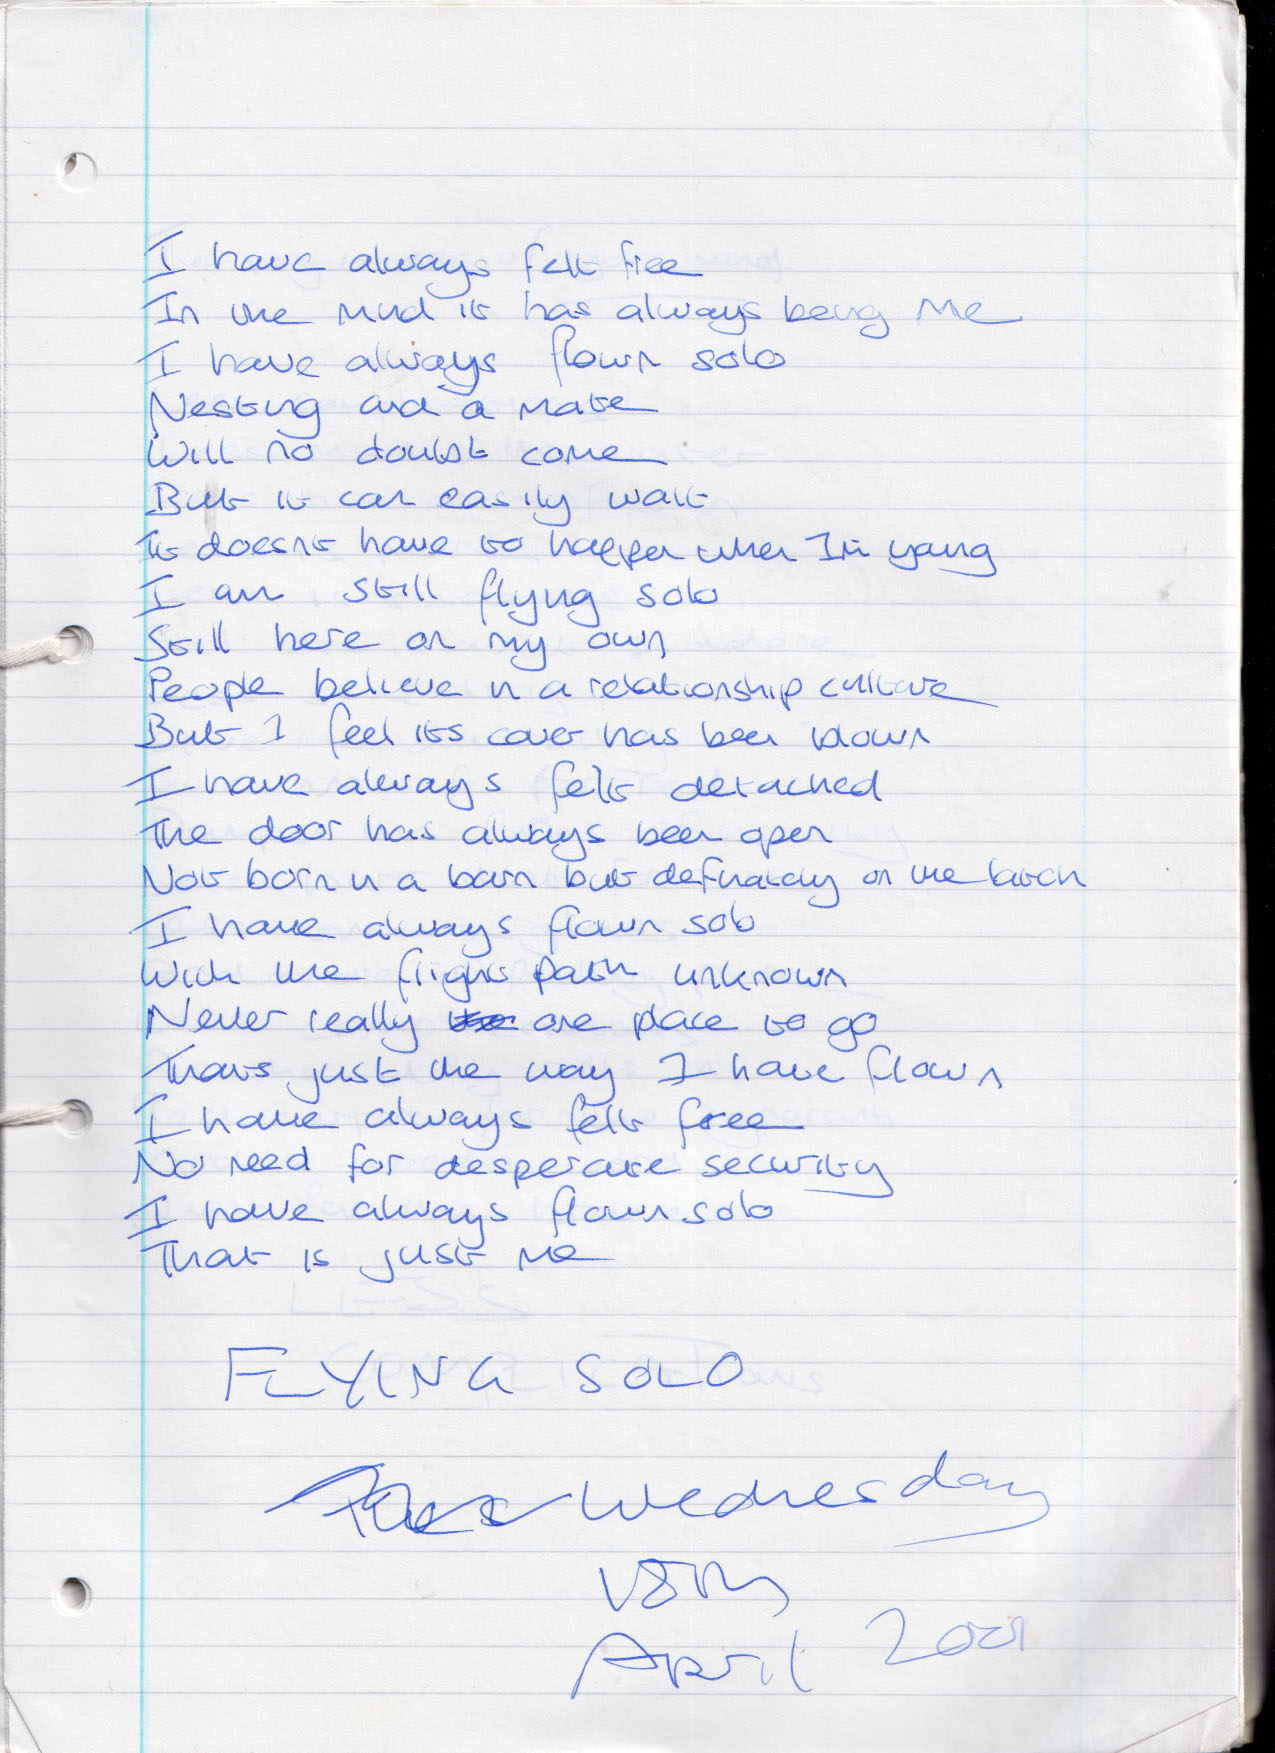 I have always felt free
In the mind it has always being me
I have always flown solo
Nesting and a mate
Will no doubt come
But it can easily wait
It doesnt have to happen when I'm young
I am still flying solo
Still here on my own
People believe in a relationship culture
But I feel its cover has been blown
I have always felt detached
The door has always been open
Not born in a barn but definately on the latch
I have always flown solo
With the flight path unknown
Never really one place to go
Thats just the way I have flown
I have always felt free
No need for desperate security
I have always flown solo
That is just me
FLYING SOLO
Wednesday
18th
April 2001